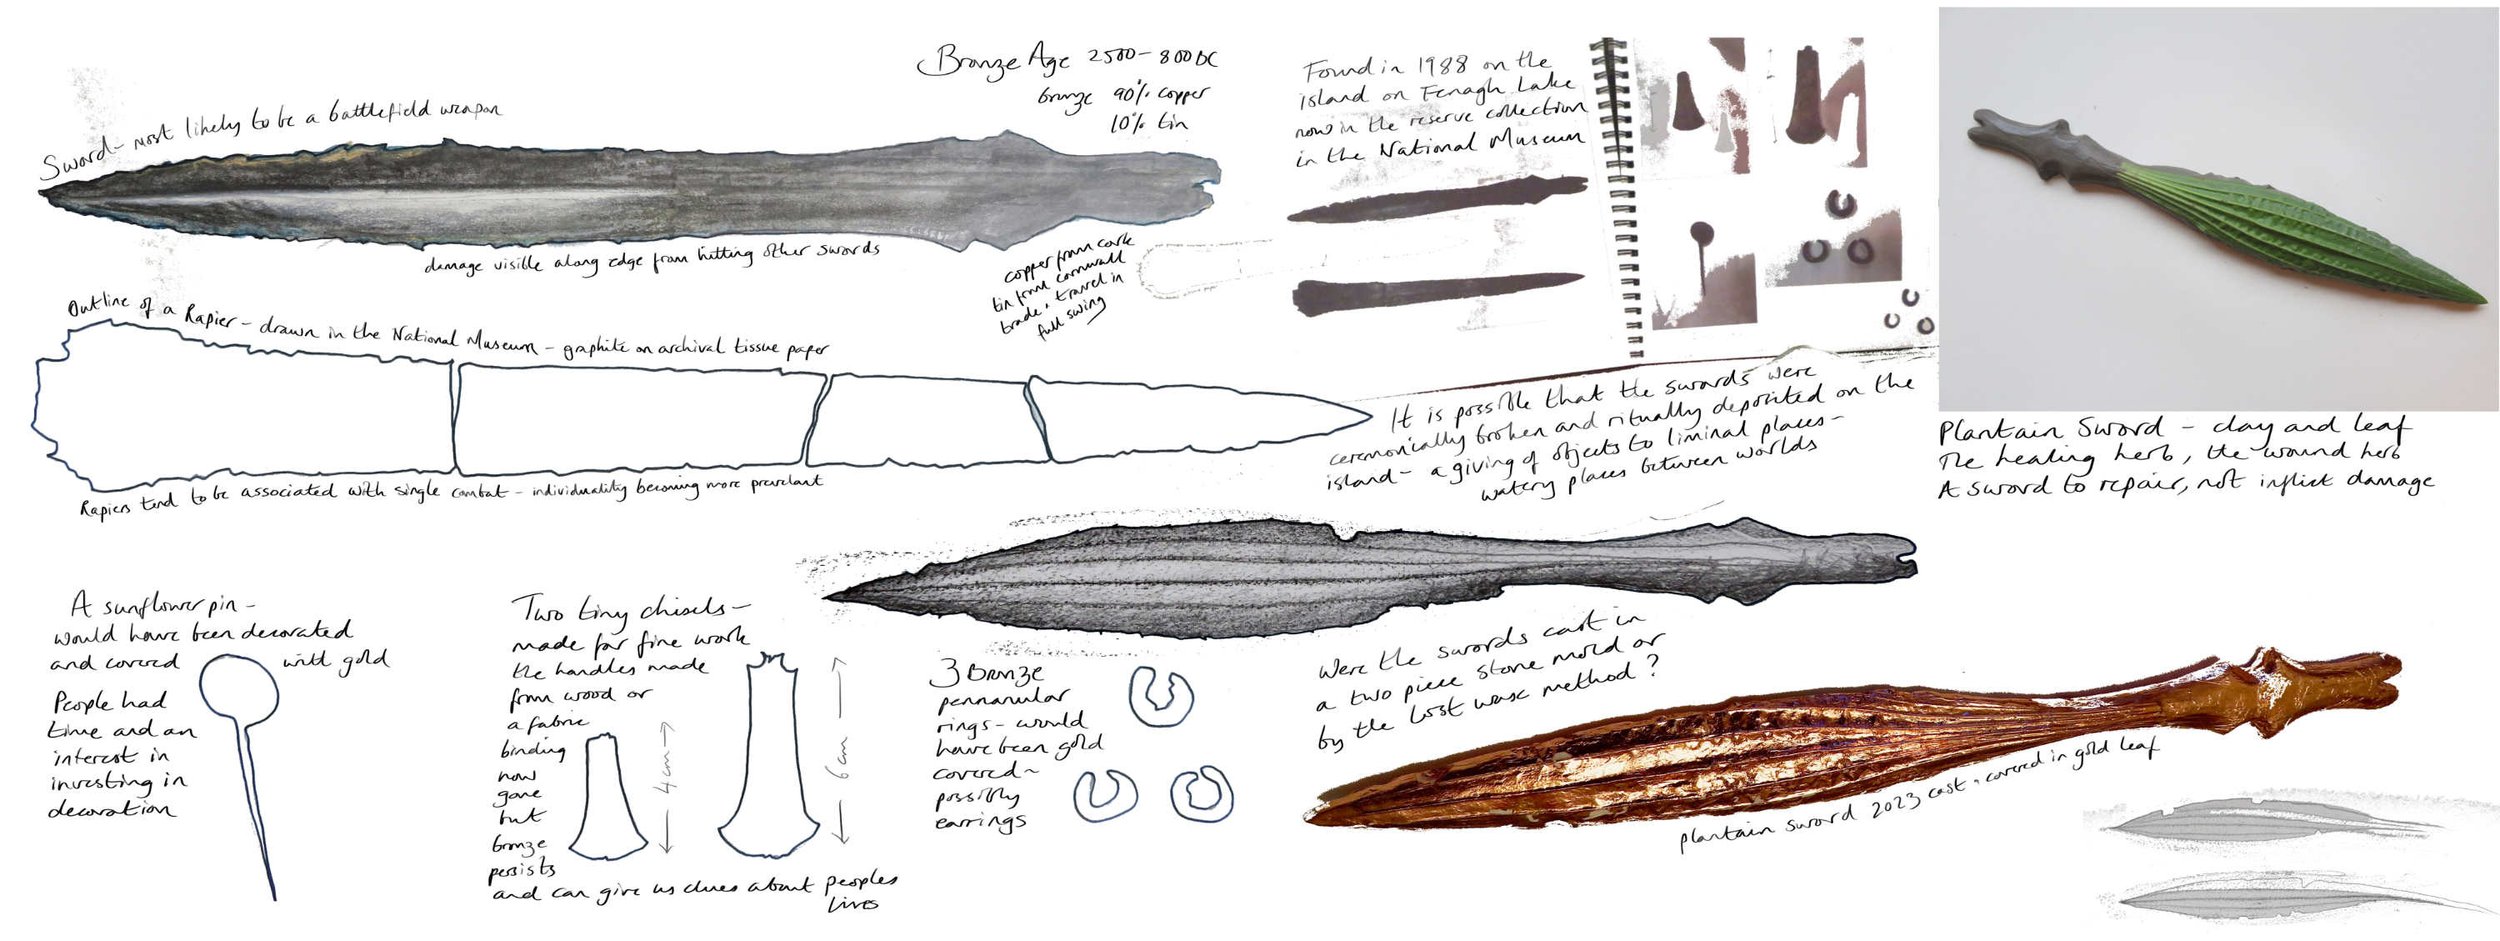 Bronze Age 2500-800BC
bronze 90% copper
10% tin
Sword - most likely to be a battlefield weapon
damage visible along edge from hitting other swords
copper from cork
tin from cornwall
trade + travel in
full swing
Found in 1988 on the
island on Fenagh Lake
now in the reserve collection
in the National Museum
Outline of a Rapier - drawn in the National Museum - graphite on archival tissue paper
Rapiers tend to be associated with single combat - individuality becoming more prevelant
It is possible that the swords were
ceremonically broken and ritually deposited on the
island - a giving of objects to liminal places -
watery places between worlds
Plantain Sword - clay and leaf
The healing herb, the wound herb
A sword to repair, not inflict damage
A sunflower pin -
would have been decorated
and covered with gold
People had
time and an
interest in
investing in
decoration
Two tiny chisels -
made for fine work
the handles made
from wood or
a fabric
binding
now
gone
but
bronze
persists
and can give us clues about peoples
lives
4cm
6cm
3 Bronze
pennanular
rings - would
have been gold
covered -
possibly
earrings
Were the swords cast in
a two piece stone mold or
by the lost wax method?
plantain sword 2023 cast + covered in gold leaf